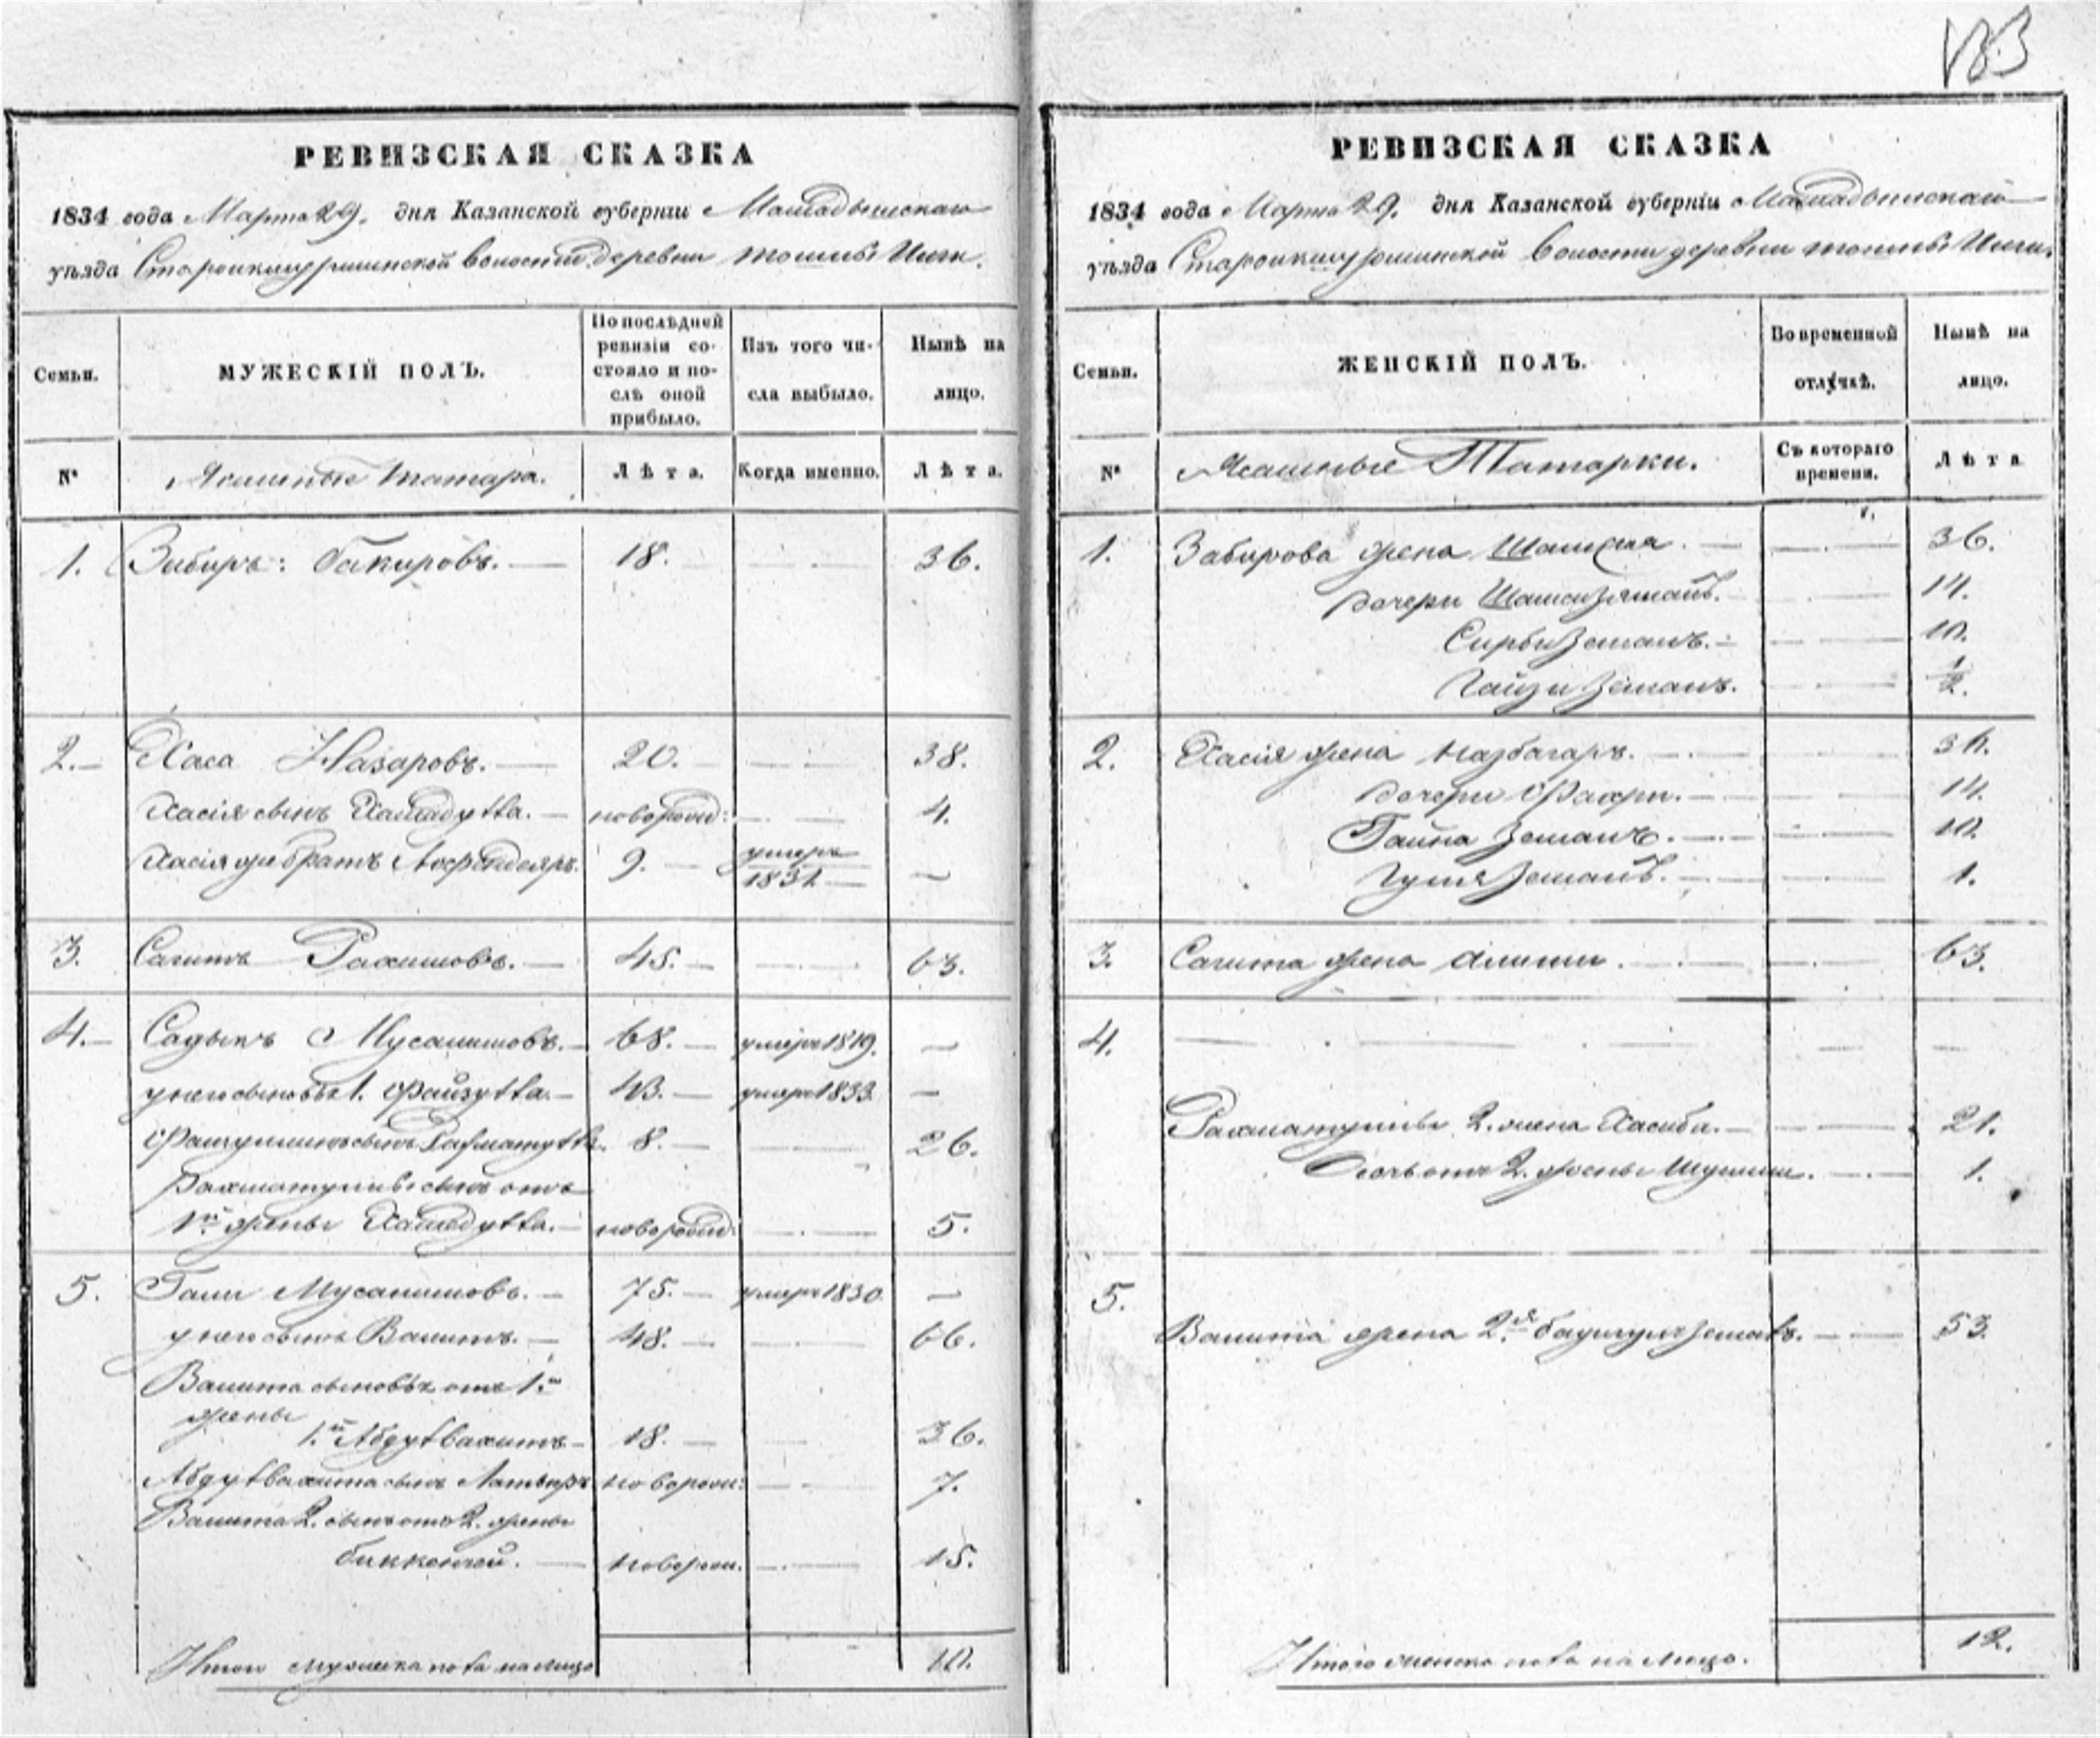 183
РЕВИЗСКАЯ СКАЗКА
1834 года Марта 29. дня Казанской губерніи Мамадышскаго
уѣзда Староикшурминской волости деревни
Семьи.
МУЖЕСКІЙ ПОЛЪ.
По послѣдней ревизіи состояло и послѣ оной прибыло.
Изъ того числа выбыло.
Нынѣ на лицо.
№
Ясашные татара.
Лѣта.
Когда именно.
Лѣта.
1. Забиръ: бакировъ. 18. 36.
2. Хаса Назаровъ. 20. 38.
Хасія сынъ Хамадулла. новорожд: 4.
Хасія же братъ 9. умеръ 1831 —
3. Сагитъ Рахимовъ. 45. 63.
4. Садыкъ Мусалимовъ. 68. умеръ 1819. —
у него сыновья 1. Файзулла. 43. умеръ 1833 —
сынъ Рахматулла. 8. 26.
Рахматуллы сынъ отъ
1й жены Хамедулла. новорожд: 5.
5. Гали Мусалимовъ. 75. умеръ 1830 —
у него сынъ Валитъ. 48. 66.
Валита сыновья отъ 1й
жены
1й Абдулвахитъ 18. 36.
Абдулвахита сынъ новорож: 7.
Валита 2. сынъ отъ 2. жены
биккеней. новорож. 15.
Итого мужеска пола на лицо 10.
РЕВИЗСКАЯ СКАЗКА
1834 года Марта 29. дня Казанской губерніи Мамадышскаго
уѣзда Староикшурминской волости деревни
Семьи.
ЖЕНСКІЙ ПОЛЪ.
Во временной отлучкѣ.
Нынѣ на лицо.
№
Ясашные Татарки.
Съ котораго времени.
Лѣта
1. Забирова жена 36.
дочери 14.
Сирбиземалъ. 10.
Гайзиземалъ. 1/2.
2. Хасія жена Назбагаръ. 36.
дочери Фахри. 14.
Гайназемалъ. 10.
1.
3. Сагита жена 63.
4.
Рахматуллы 2. жена Хасиба. 21.
Дочь отъ 2. жены 1.
5.
Валита жена 2я 53.
Итого женска пола на лицо. 12.